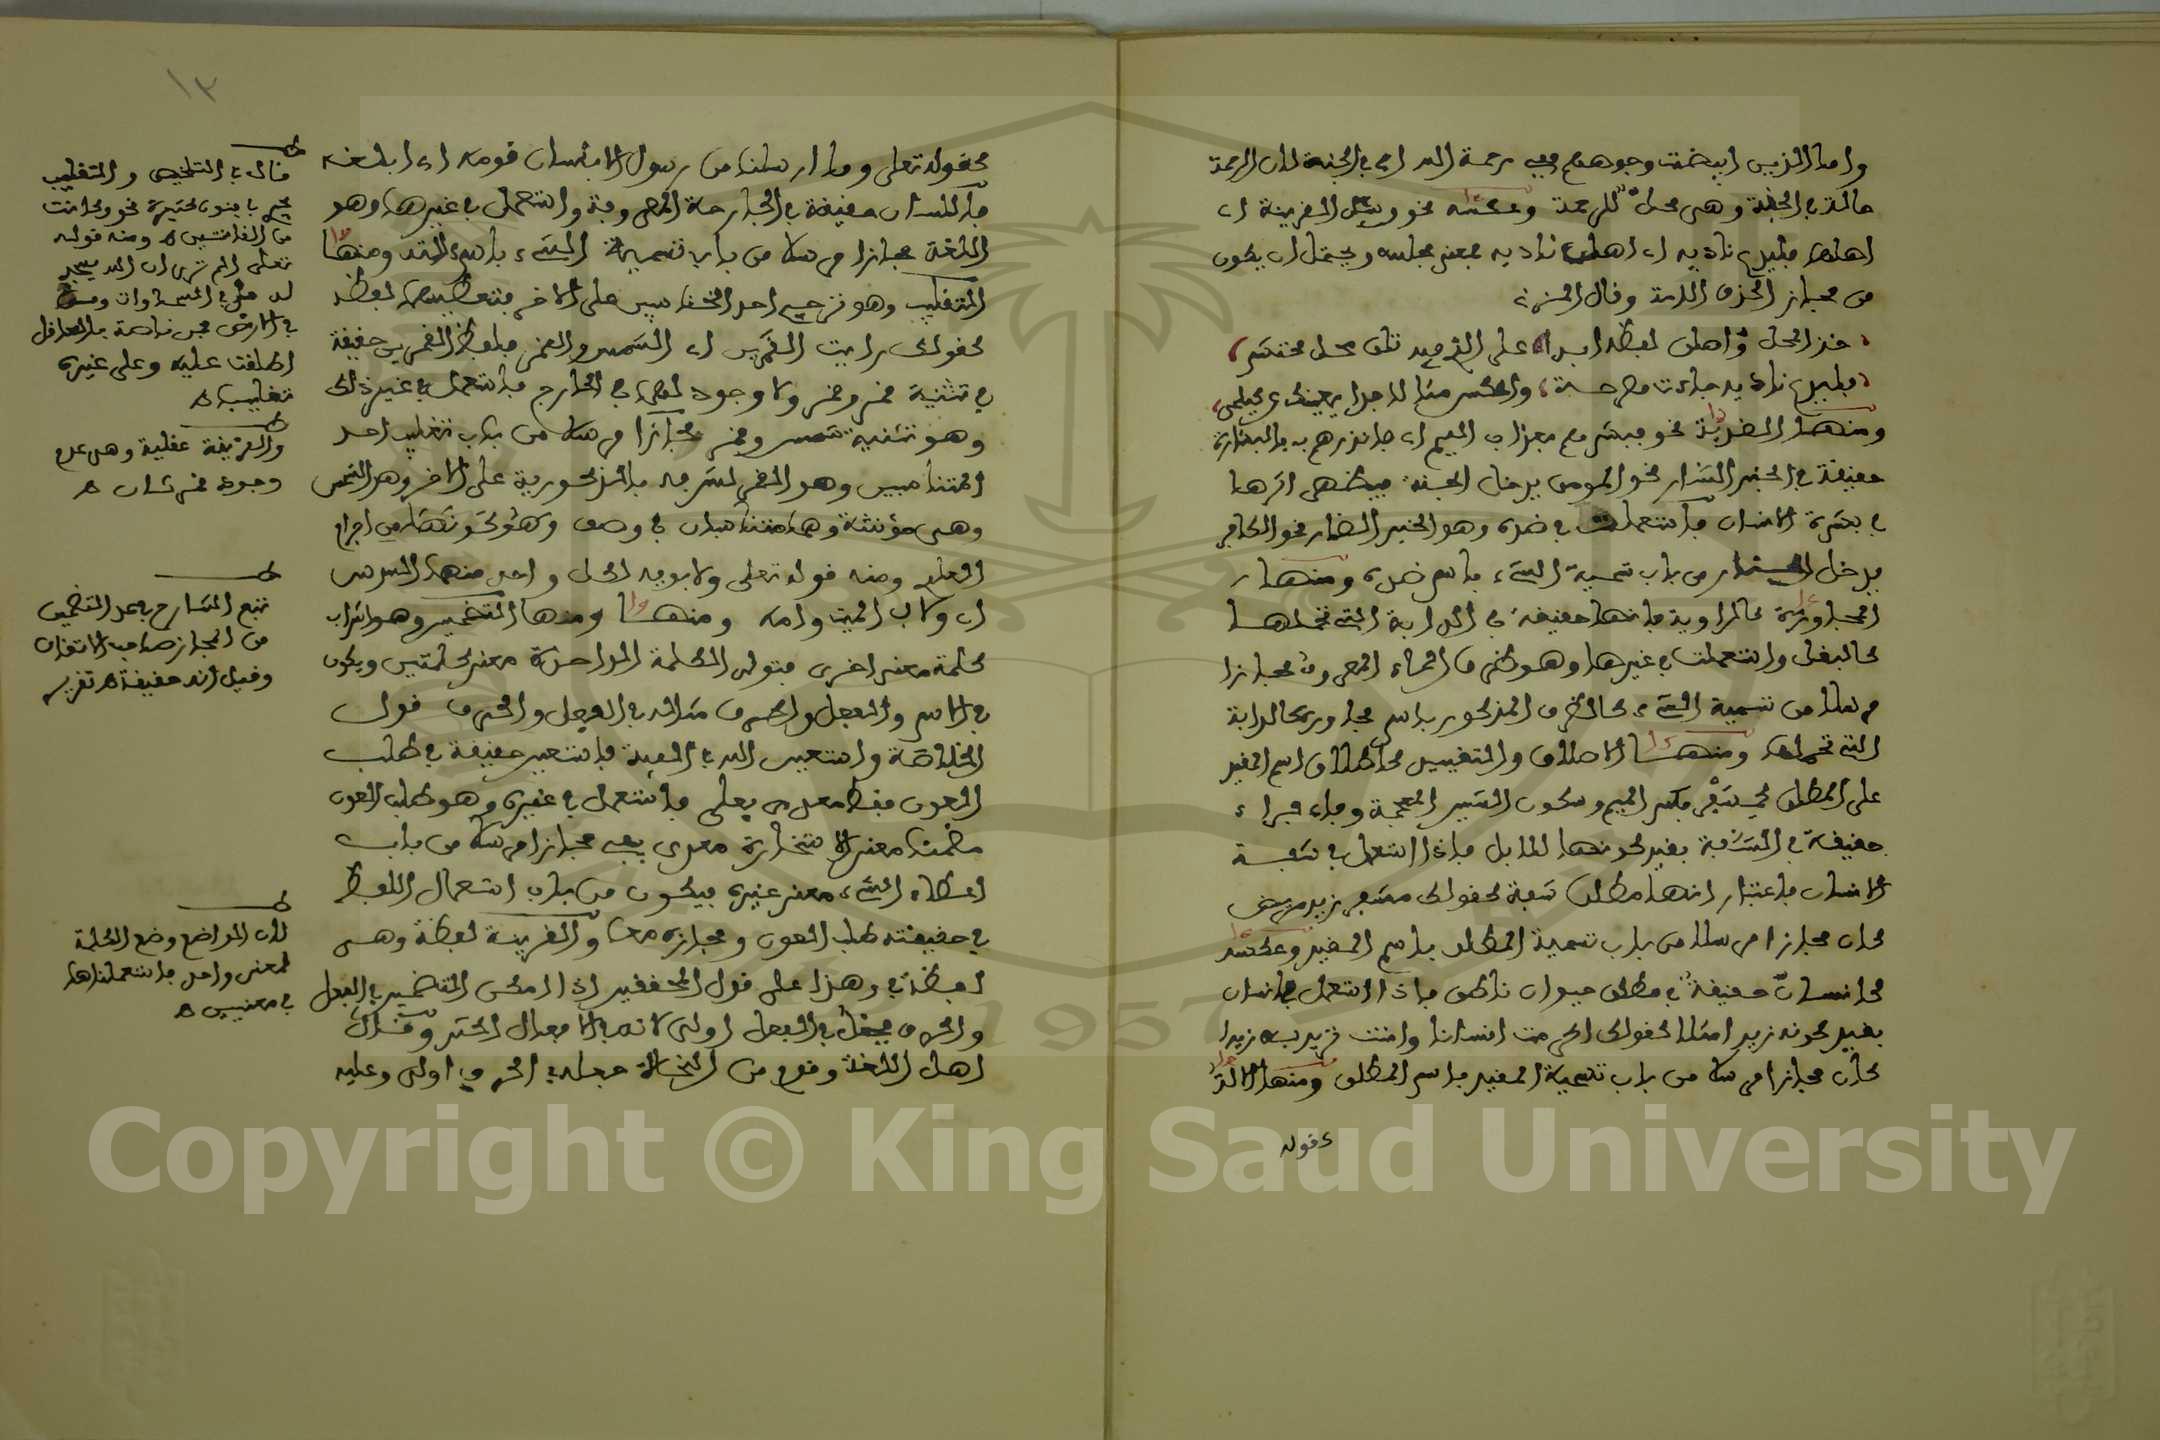 واما الذين ابيضت وجوههم ففي رحمة الله اي في الجنة لان الرحمة
حالة في الجنة وهي محل للرحمة وعكسه نحو وسئل القرية اي
اهلها فليدع ناديه اي اهل ناديه بمعنى مجلسه ويحتمل ان يكون
من مجاز الحذف
فليدع ناديه جاءت
ومنها الضدية نحو فبشرهم بعذاب اليم اي فانذرهم به فالبشارة
حقيقة في الخبر السار نحو المومن يدخل الجنة فيظهر اثرها
في بشرة الانسان فاستعملت في ضده وهو الخبر الضار نحو الكافر
يدخل النار من باب تسمية الشيء باسم ضده ومنها
المجاورة كالراوية فانها حقيقة في الدابة التي تحملها
كالبغل واستعملت في غيرها وهو ظرف الماء المعروف مجازا
مرسلا من تسمية الشيء كالظرف المذكور باسم مجاوره كالدابة
التي تحملها ومنها الاطلاق والتقييد كاطلاق اسم المقيد
على المطلق كمشفر بكسر الميم وسكون الشين المعجمة وفاء فراء
حقيقة في الشفة بقيد كونها للابل فاذا استعمل في شفة
الانسان باعتبار انها مطلق شفة كقولك مشفر زيد مريض
كان مجازا مرسلا من باب تسمية المطلق باسم المقيد وعكسه
كانسان حقيقة في مطلق حيوان ناطق فاذا استعمل انسان
بقيد كونه زيد امثلا كقولك اكرمت انسانا وانت تريد به زيدا
كان مجازا مرسلا من باب تسمية المقيد باسم المطلق ومنها الالة
كقوله
١٣
كقوله تعلى وما ارسلنا من رسول الا بلسان قومه اي ابلغة
فاللسان حقيقة في الجارحة المعروفة واستعمل في غيرها وهو
اللغة مجازا مرسلا من باب تسمية الشيء باسم الته ومنها
التغليب وهو ترجيح احد المتناسبين على الاخر
كقولك رايت القمرين اي الشمس والقمر فلفظ القمرين حقيقة
في تثنية قمر وقمر ولا وجود لهما في الخارج فاستعمل في غير ذلك
وهو تثنية شمس وقمر مجازا مرسلا من باب تغليب احد
المتناسبين وهو القمر لشرفه بالذكورية على الاخر وهو الشمس
وهي مؤنثة وهما متناسبان في وصف
العلم ومنه قوله تعلى ولابويه لكل واحد منهما السدس
اي ولاب الميت وامه ومنها ومنها التضمين وهو اشراب
كلمة معنى اخرى فتودي الكلمة الواحدة معنى كلمتين ويكون
في الاسم والفعل والحرف مثاله في الفعل والحرف قول
الخلاصة واستعين الله في الفية فاستعين حقيقة في طلب
العون فقط معدى بعلى فاستعمل في غيره وهو طلب العون
مضمنا معنى الاستخارة معدى بفي مجازا مرسلا من باب
اعطاء الشيء معنى غيره فيكون من باب استعمال اللفظ
في حقيقته طلب العون ومجازه معا والقرينة لفظة وهي
لفظة في وهذا على قول المحققين اذا امكن التضمين في الفعل
والحرف فجعله في الفعل اولى لانه في الافعال اكثر وقال
اهل اللغة وقوم من النحاة جعله في الحرف اولى وعليه
قال في التلخيص والتغليب
يجري في فنون كثيرة نحو وكانت
من القانتين ه ومنه قوله
تعلى الم تر ان الله يسجد
له من في السماوات ومن
في الارض فمن خاصة بالعاقل
اطلقت عليه وعلى غيره
تغليبا ه
والقرينة عقلية وهي عدم
وجود قمر ثان ه
تبع الشارح في عد التضمين
من المجاز صاحب الاتقان
وقيل انه حقيقة ه تقرير
لان الواضع وضع الكلمة
لمعنى واحد فاستعملناها
في معنيين ه
Copyright © King Saud University
1957